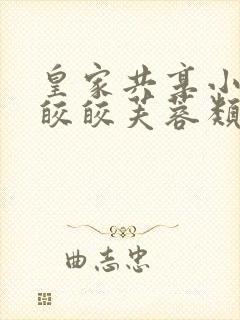 皇家共享小
皎皎芙蓉颜
曲志忠